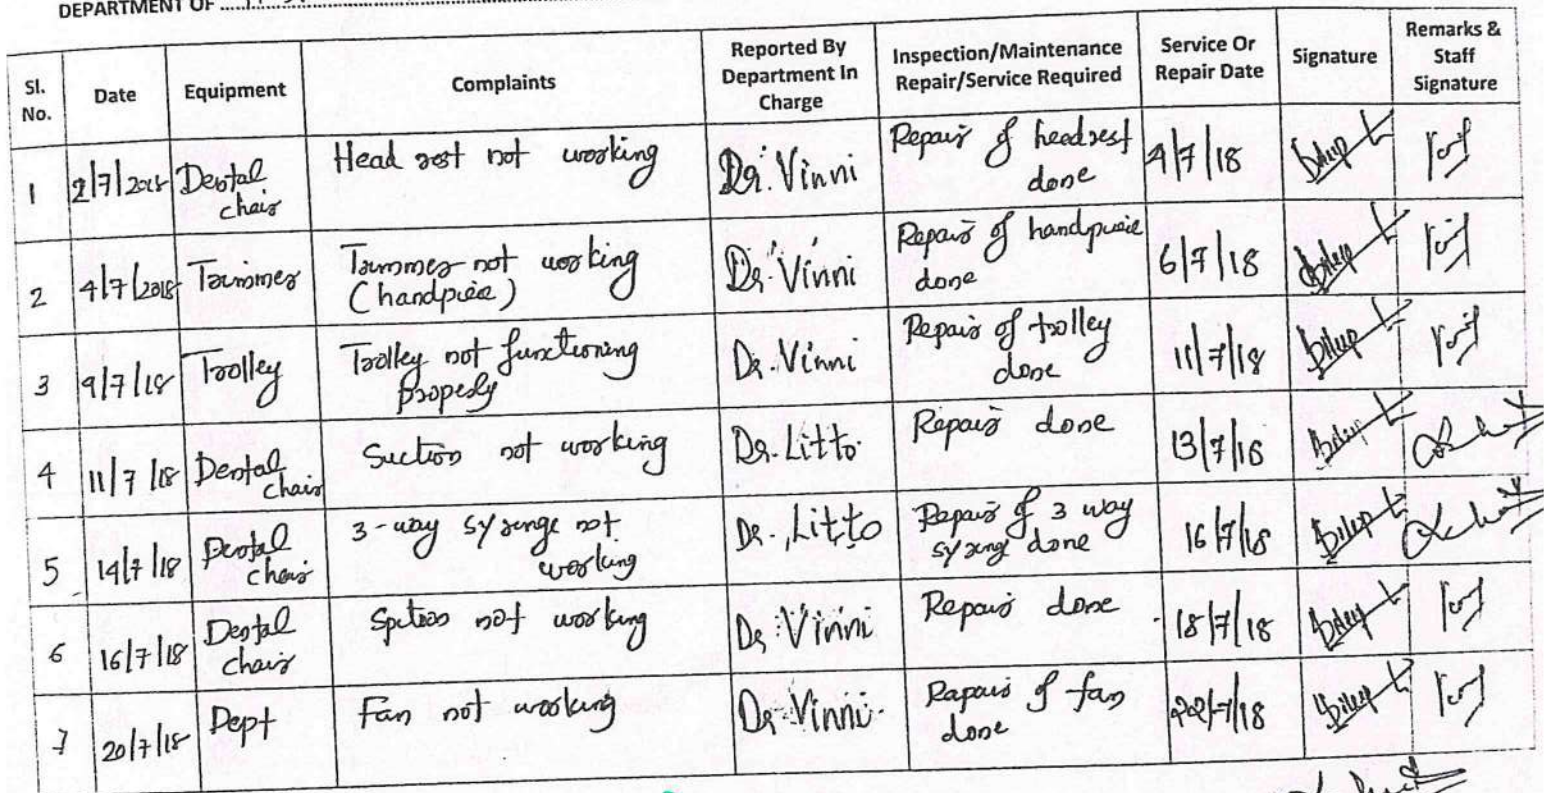 DEPARTMENT OF
Sl. No. | Date | Equipment | Complaints | Reported By Department In Charge | Inspection/Maintenance Repair/Service Required | Service Or Repair Date | Signature | Remarks & Staff Signature
1 | 2/7/2018 | Dental chair | Head rest not working | Dr. Vinni | Repair of headrest done | 4/7/18 | Dilip
2 | 4/7/2018 | Trimmer | Trimmer not working (handpiece) | Dr. Vinni | Repair of handpiece done | 6/7/18 | Dilip
3 | 9/7/18 | Trolley | Trolley not functioning properly | Dr. Vinni | Repair of trolley done | 11/7/18 | Dilip
4 | 11/7/18 | Dental chair | Suction not working | Dr. Litto | Repair done | 13/7/18 | Dilip
5 | 14/7/18 | Dental chair | 3-way syringe not working | Dr. Litto | Repair of 3 way syring done | 16/7/18 | Dilip
6 | 16/7/18 | Dental chair | not working | Dr. Vinni | Repair done | 18/7/18 | Dilip
7 | 20/7/18 | Dept | Fan not working | Dr. Vinni | Rapair of fan done | 22/7/18 | Dilip